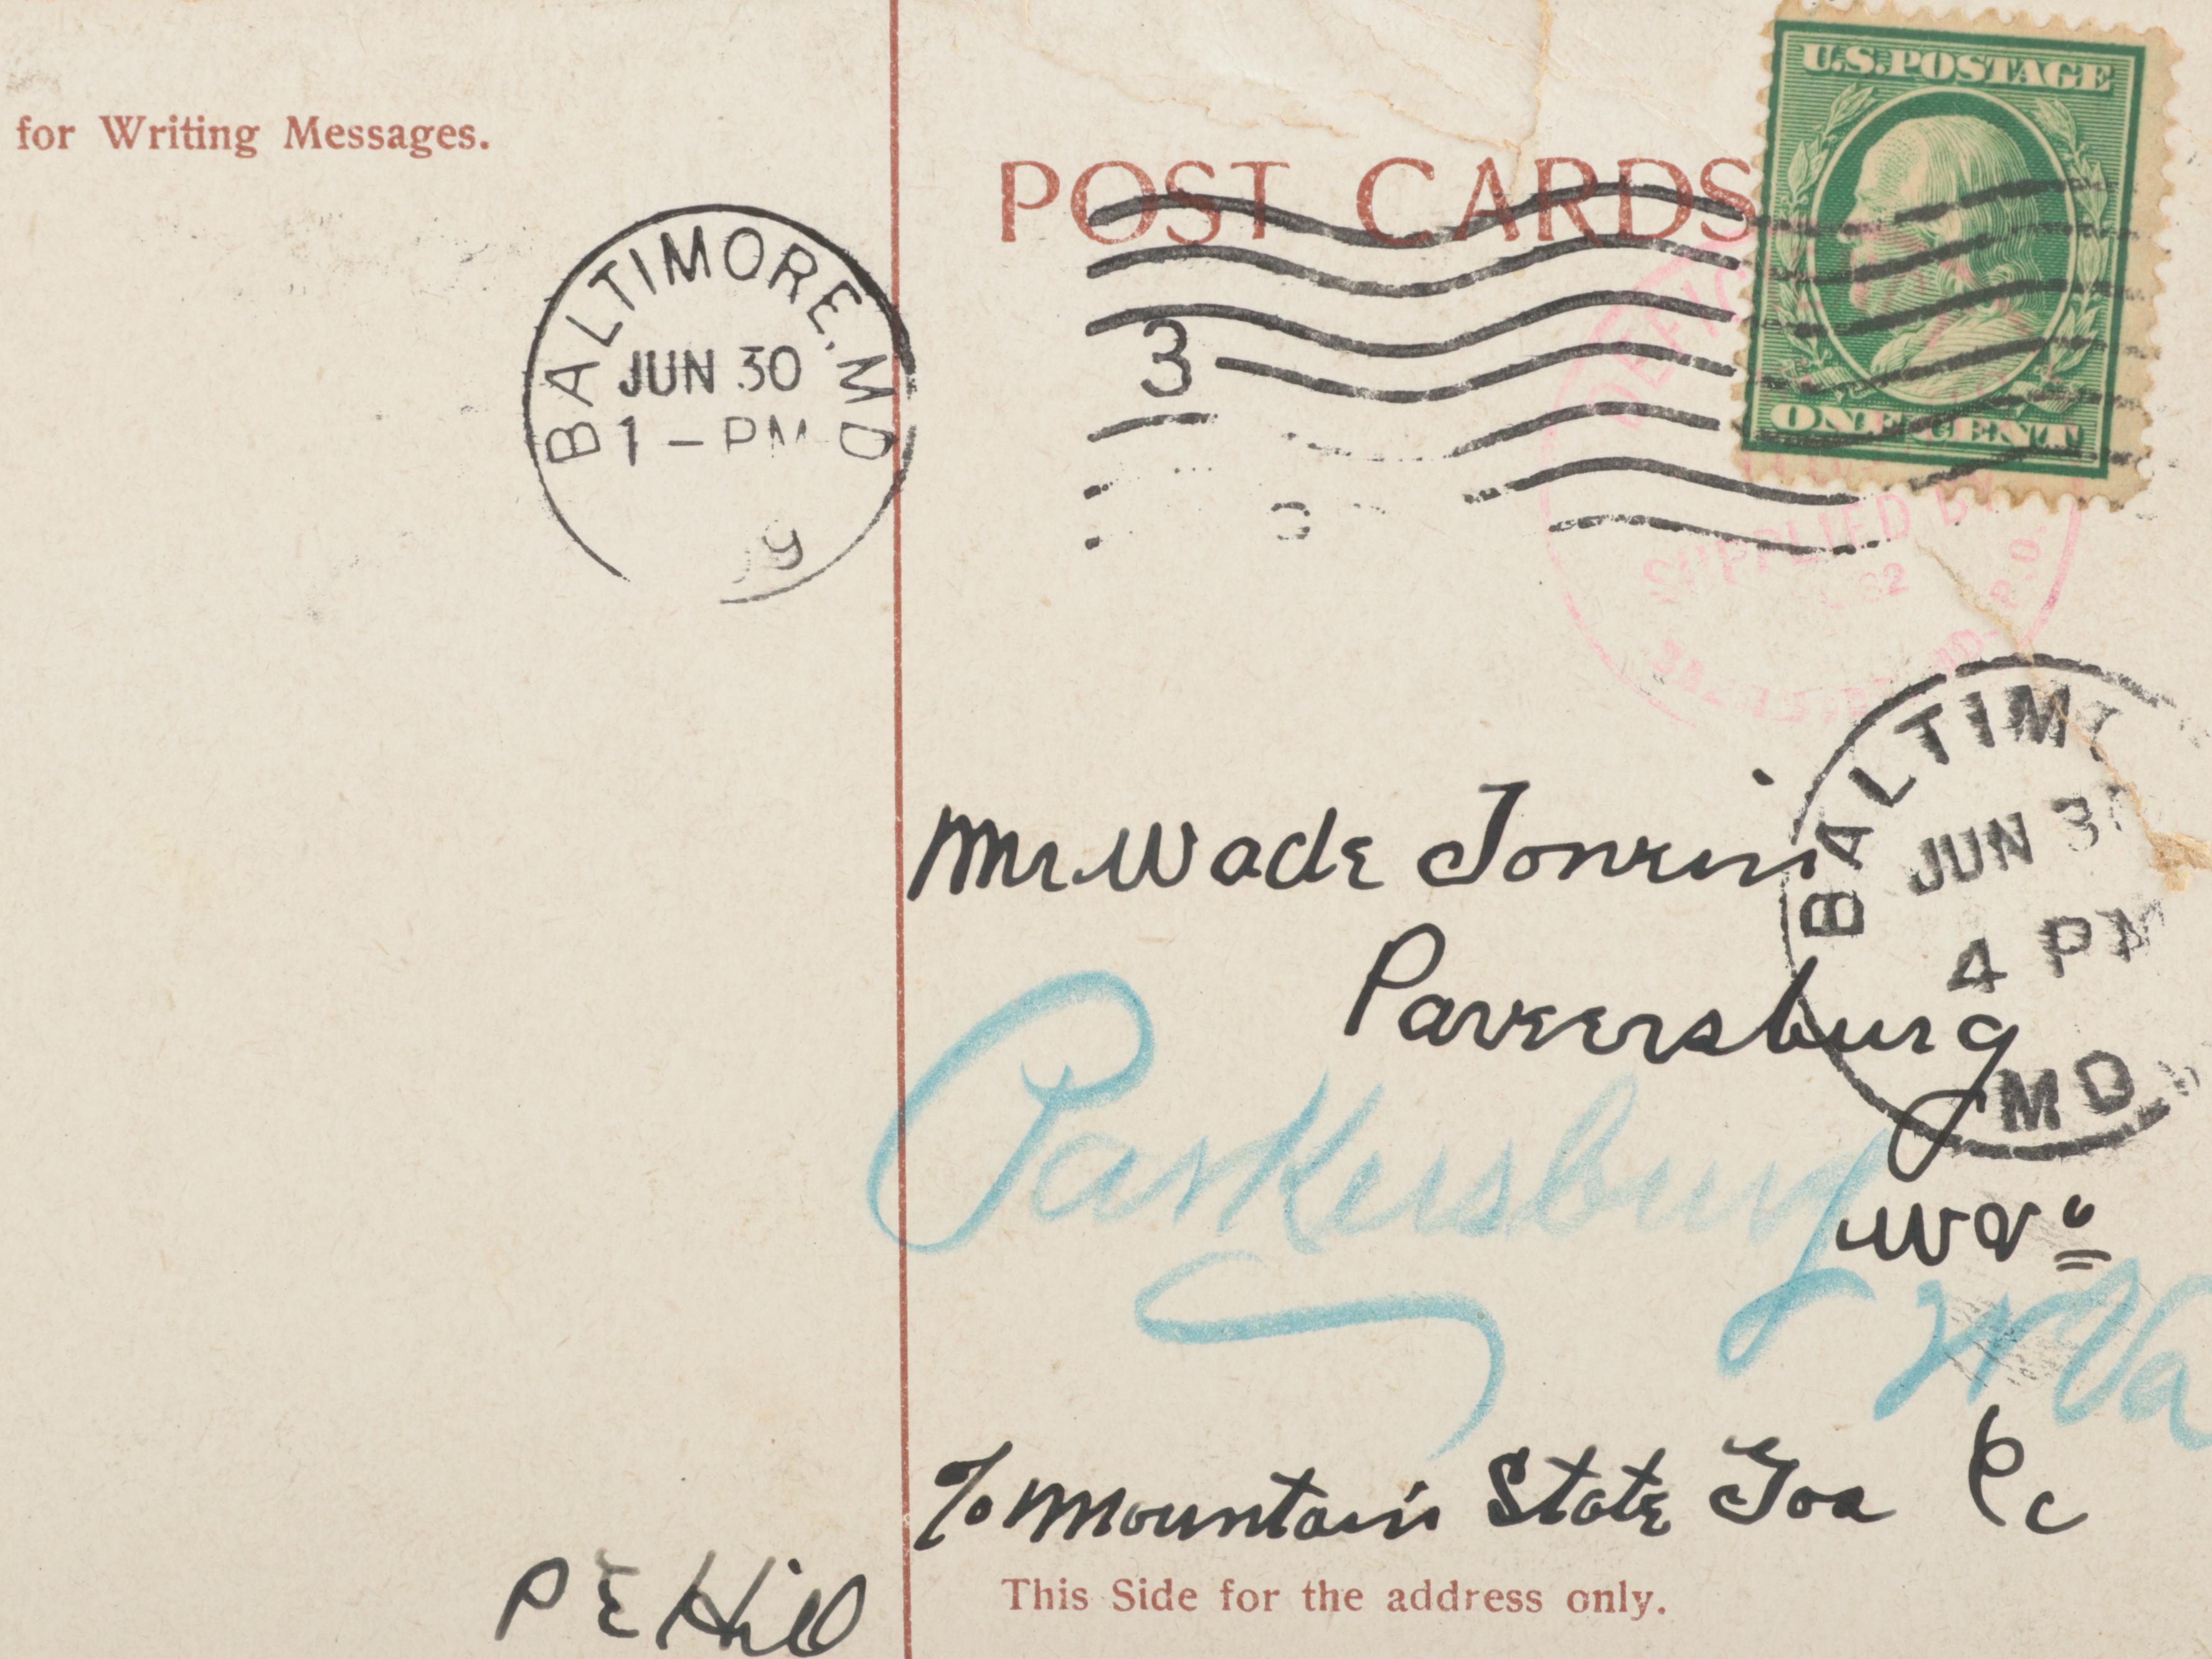 for Writing Messages.
POST CARDS
U.S. POSTAGE
ONE CENT
BALTIMORE, MD
JUN 30
1-PM
3
SUPPLIED BY
P.O.
BALTIM
JUN 3
4 PM
MD
Mr Wade
Parkersburg
W Va
Wva
c/o Mountain State
P E Hill
This Side for the address only.